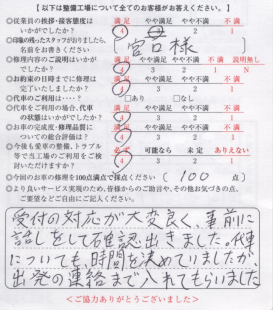 【以下は整備工場について全てのお客様がお答えください。】
◎従業員の挨拶・接客態度は 満足 やや満足 やや不満 不満
いかがでしたか? 4 3 2 1
◎印象の残ったスタッフがおりましたら、
名前をお書きください 宮口様
◎修理内容のご説明はいかが 満足 やや満足 やや不満 不満 説明無し
でしたか? 4 3 2 1 N
◎お約束の日時までに修理は 満足 やや満足 やや不満 不満
完了いたしましたか? 4 3 2 1
◎代車のご利用は…? □あり □なし
◎代車をご利用の場合、代車 満足 やや満足 やや不満 不満
の状態はいかがでしたか? 4 3 2 1
◎お車の完成度・修理品質に 満足 やや満足 やや不満 不満
ついての総合評価は? 4 3 2 1
◎今後も愛車の整備、トラブル 必ず 可能なら 未定 ありえない
等で当工場のご利用をご検 4 3 2 1
討いただけますか?
◎今回のお車の修理を100点満点で採点ください (100 点)
◎より良いサービス実現のため、皆様からのご助言や、その他お気づきの点、
ご要望などご自由にご記入ください。
受付の対応が大変良く、事前に
話しをして確認出きました。代車
についても、時間を決めていましたが、
出発の連絡まで入れてもらいました
<ご協力ありがとうございました>